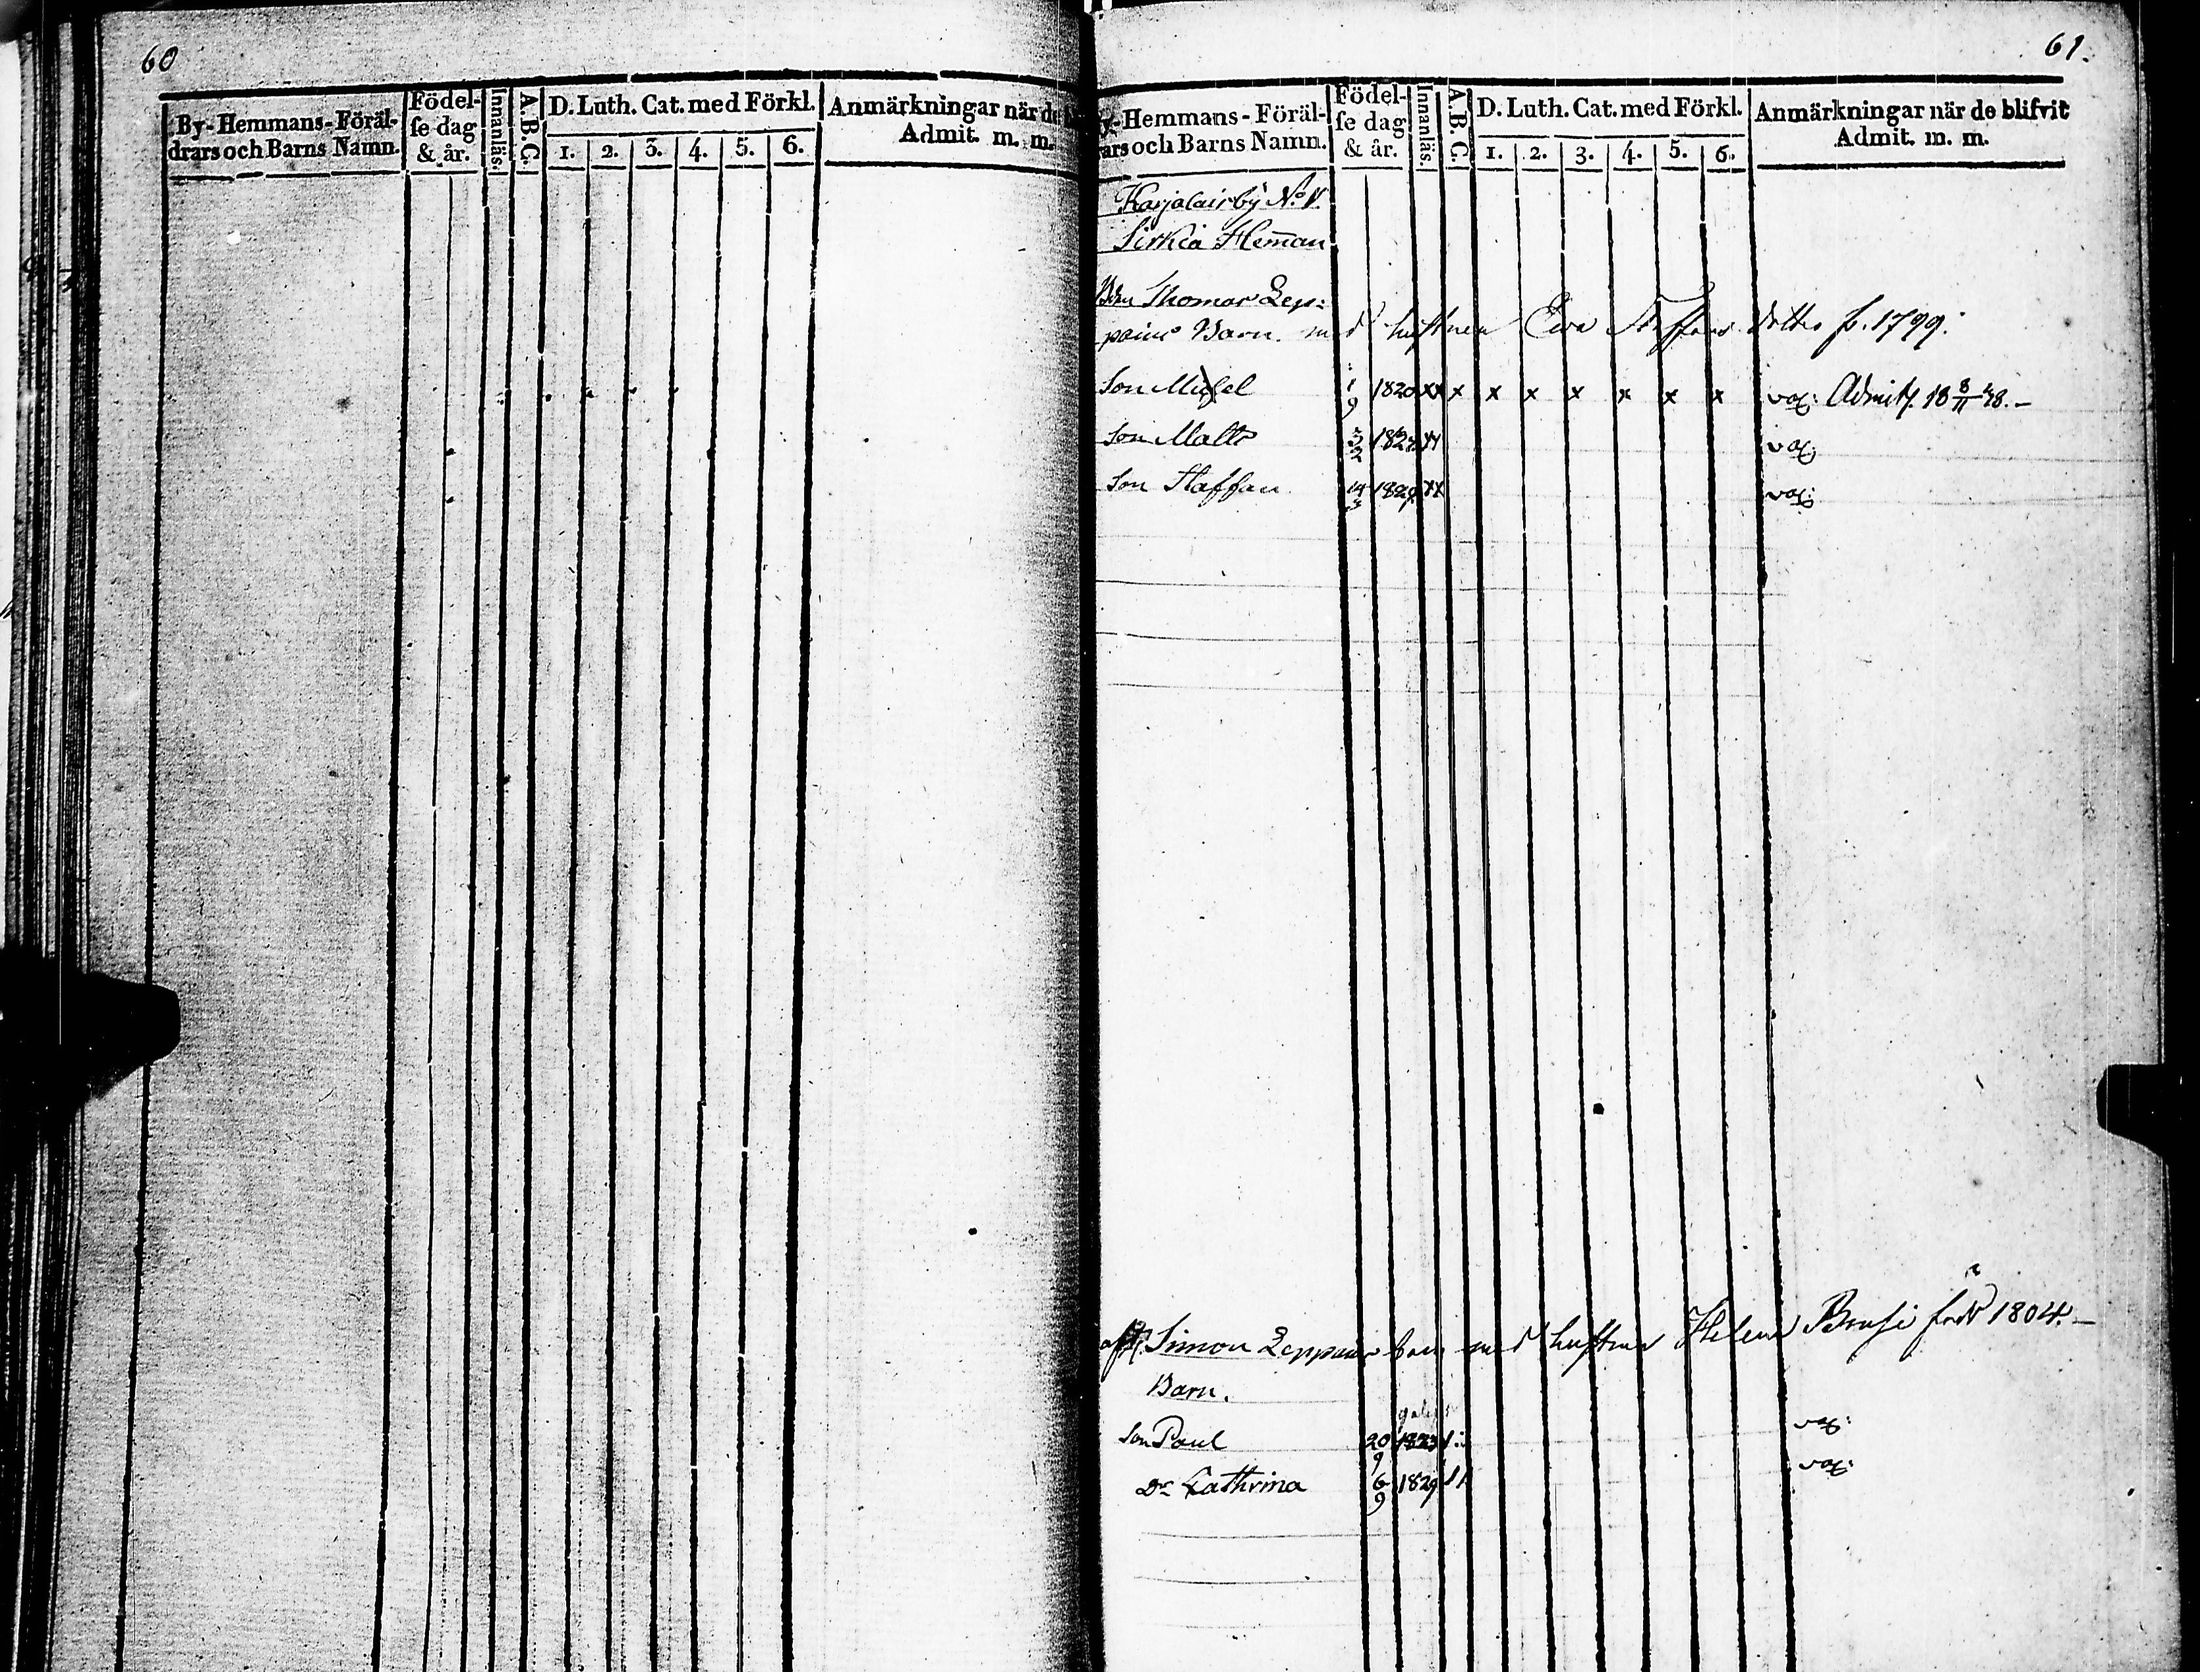 60
By- Hemmans- Föräl-
drars och Barns Namn.
Födel-
se dag
& år.
Innanläs.
A.B.C.
D. Luth. Cat. med Förkl.
1. 2. 3. 4. 5. 6.
Anmärkningar när de
Admit. m. m.
61.
y- Hemmans- Föräl-
rars och Barns Namn.
Födel-
se dag
& år.
Innanläs.
A.B.C.
D. Luth. Cat. med Förkl.
1. 2. 3. 4. 5. 6.
Anmärkningar när de blifvit
Admit. m. m.
Karjalaisby No
Sirkiä Heman
Thomas Lep-
pains Barn. med hustrun Eva Staffans dotter f. 1799.
Son Michel 1/9 1820 xx x x x x x x x vax: Admitt. 18 8/11 48.-
Son Matts 3/2 182 xx vax:
Son Staffan 14/3 1829 xx vax:
Simon Leppains barn med hustrun Helena född 1804.-
Barn.
Son Paul 20/9 1823 vax:
Dr Cathrina 6/9 1829 vax: